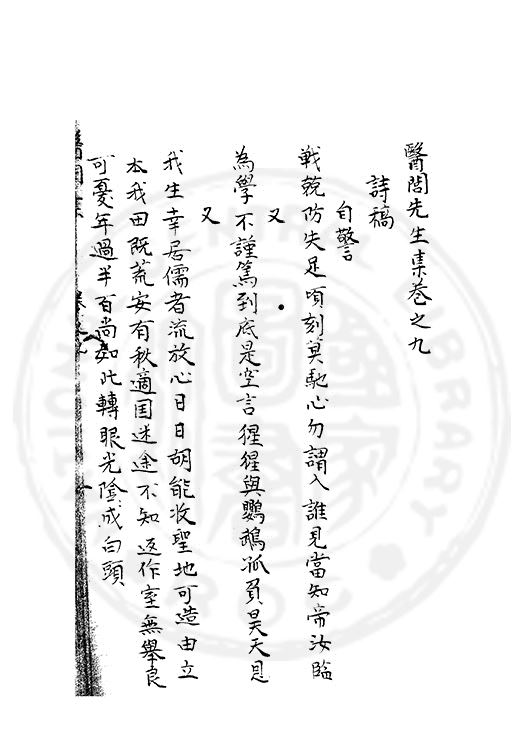 醫閭先生集卷之九
詩稿
自警
戰兢防失足頃刻莫馳心勿謂入誰見當知帝汝臨
又
為學不謹篤到底是空言猩猩與鸚鵡孤負昊天恩
又
我生幸居儒者流放心日日胡能收聖地可造由立
本我田既荒安有秋適國迷途不知返作室無舉良
可憂年過半百尚如此轉眼光陰成白頭